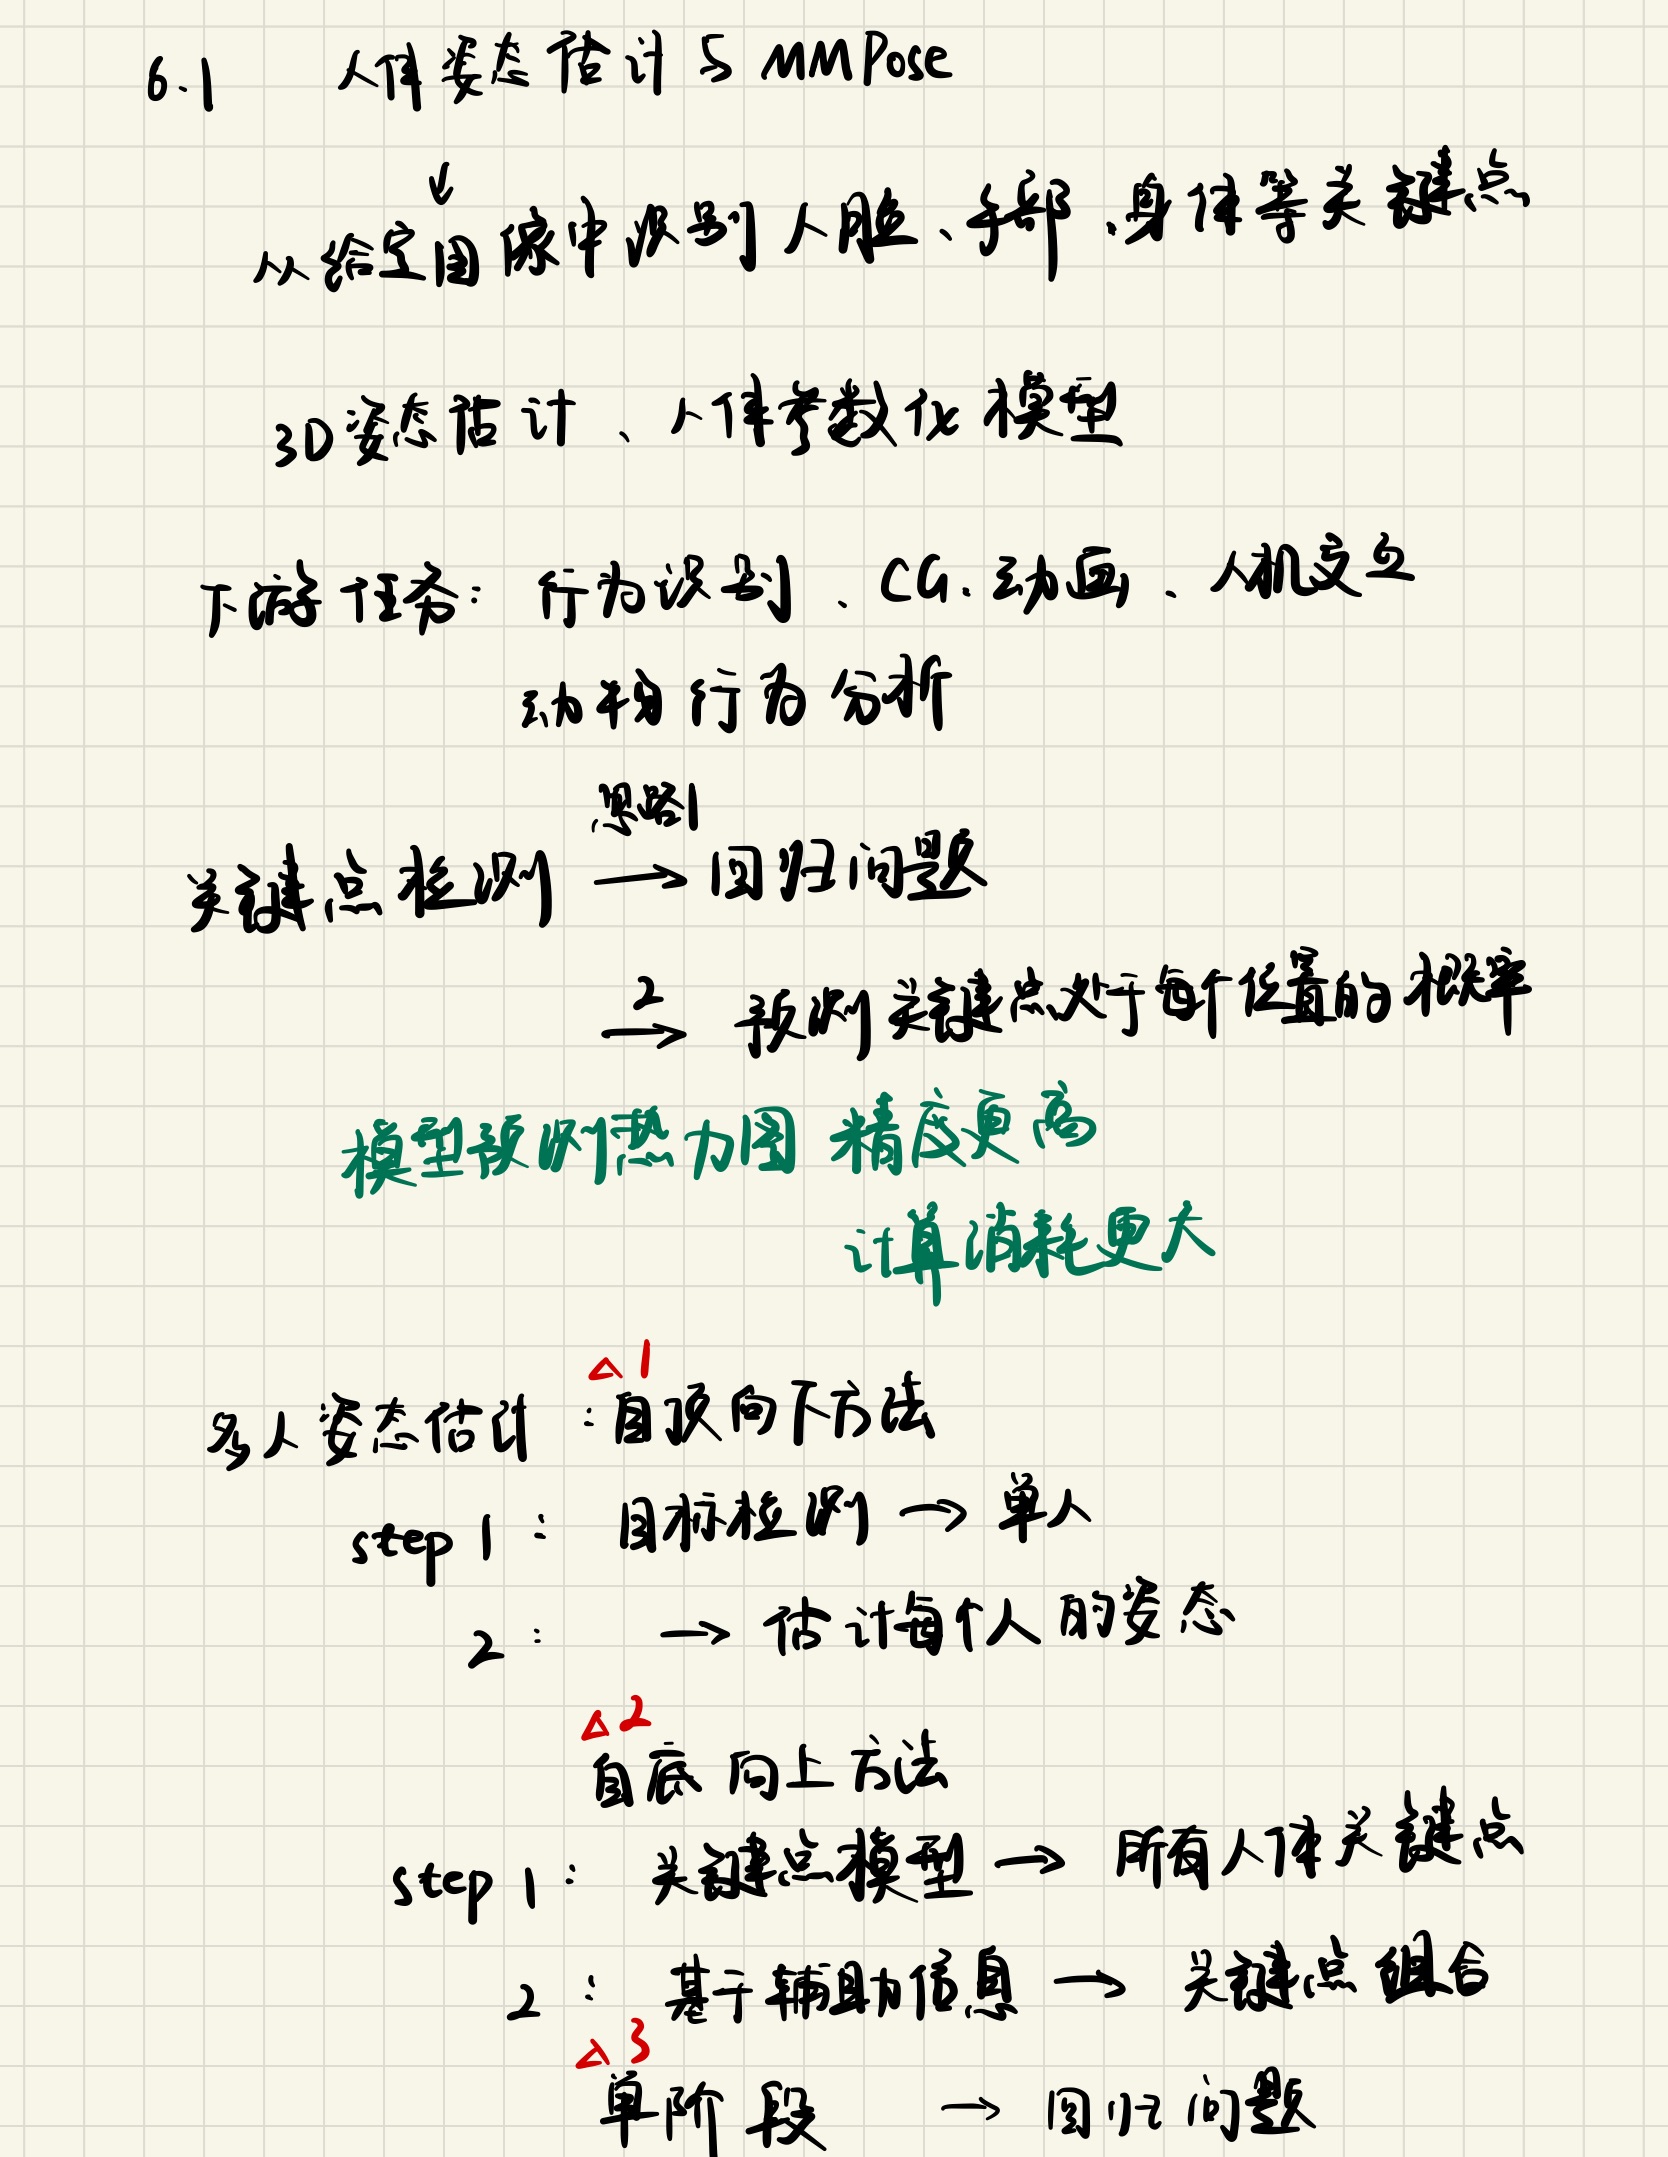 6.1 人体姿态估计与 MMPose
↓
从给定图像中识别人脸、手部、身体等关键点
3D姿态估计、人体参数化模型
下游任务: 行为识别、CG.动画、人机交互
动物行为分析
思路1
关键点检测 → 回归问题
2
→ 预测关键点处于每个位置的概率
模型预测热力图 精度更高
计算消耗更大
△1
多人姿态估计:自顶向下方法
step 1: 目标检测 → 单人
2: → 估计每个人的姿态
△2
自底向上方法
step 1: 关键点模型 → 所有人体关键点
2: 基于辅助信息 → 关键点组合
△3
单阶段 → 回归问题